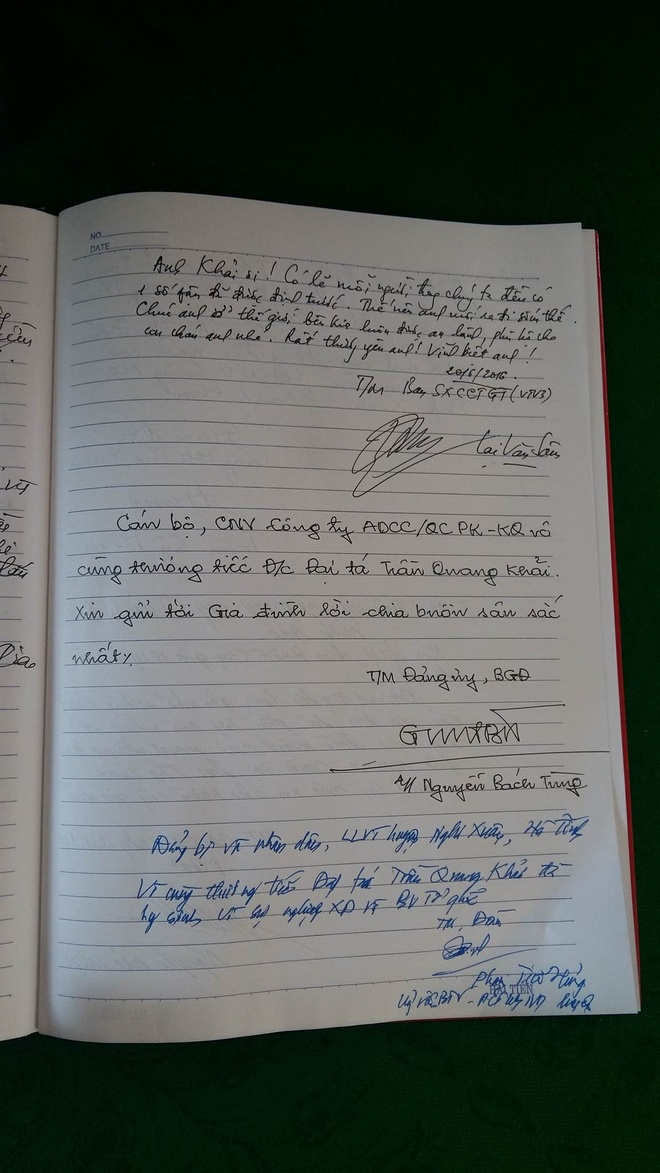 NO.
DATE
Anh Khải ơi! Có lẽ mỗi người chúng ta đều có
1 số phận đã được định trước. Thế nên anh mới ra đi sớm thế.
Chúc anh ở thế giới bên kia luôn được an lành, phù hộ cho
con cháu anh nhé. Rất thương yên anh! Vĩnh biệt anh!
20/6/2016.
T/M Ban SXCCTGT (VTV3)
Lại Văn Sâm
Cán bộ, CNV Công ty ADCC/QC PK-KQ vô
cùng thương tiếc Đ/c Đại tá Trần Quang Khải.
Xin gửi tới Gia đình lời chia buồn sâu sắc
nhất./.
T/M Đảng ủy, BGĐ
Nguyễn Bách Tùng
Đảng bộ và nhân dân, LLVT huyện Nghi Xuân, Hà Tĩnh
Vô cùng thương tiếc Đại tá Trần Quang Khải đã
hy sinh vì sự nghiệp XD và BV Tổ quốc
TM. Đoàn
Phan
HẢI TIẾN